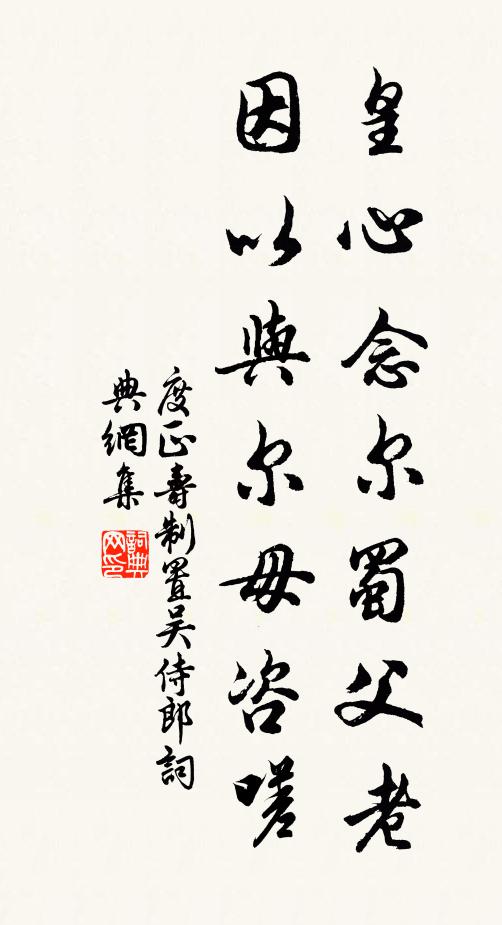 皇心念尔蜀父老
因以與尔毋咨嗟
度正壽制置吴侍郎詞
典網集
詞典网印